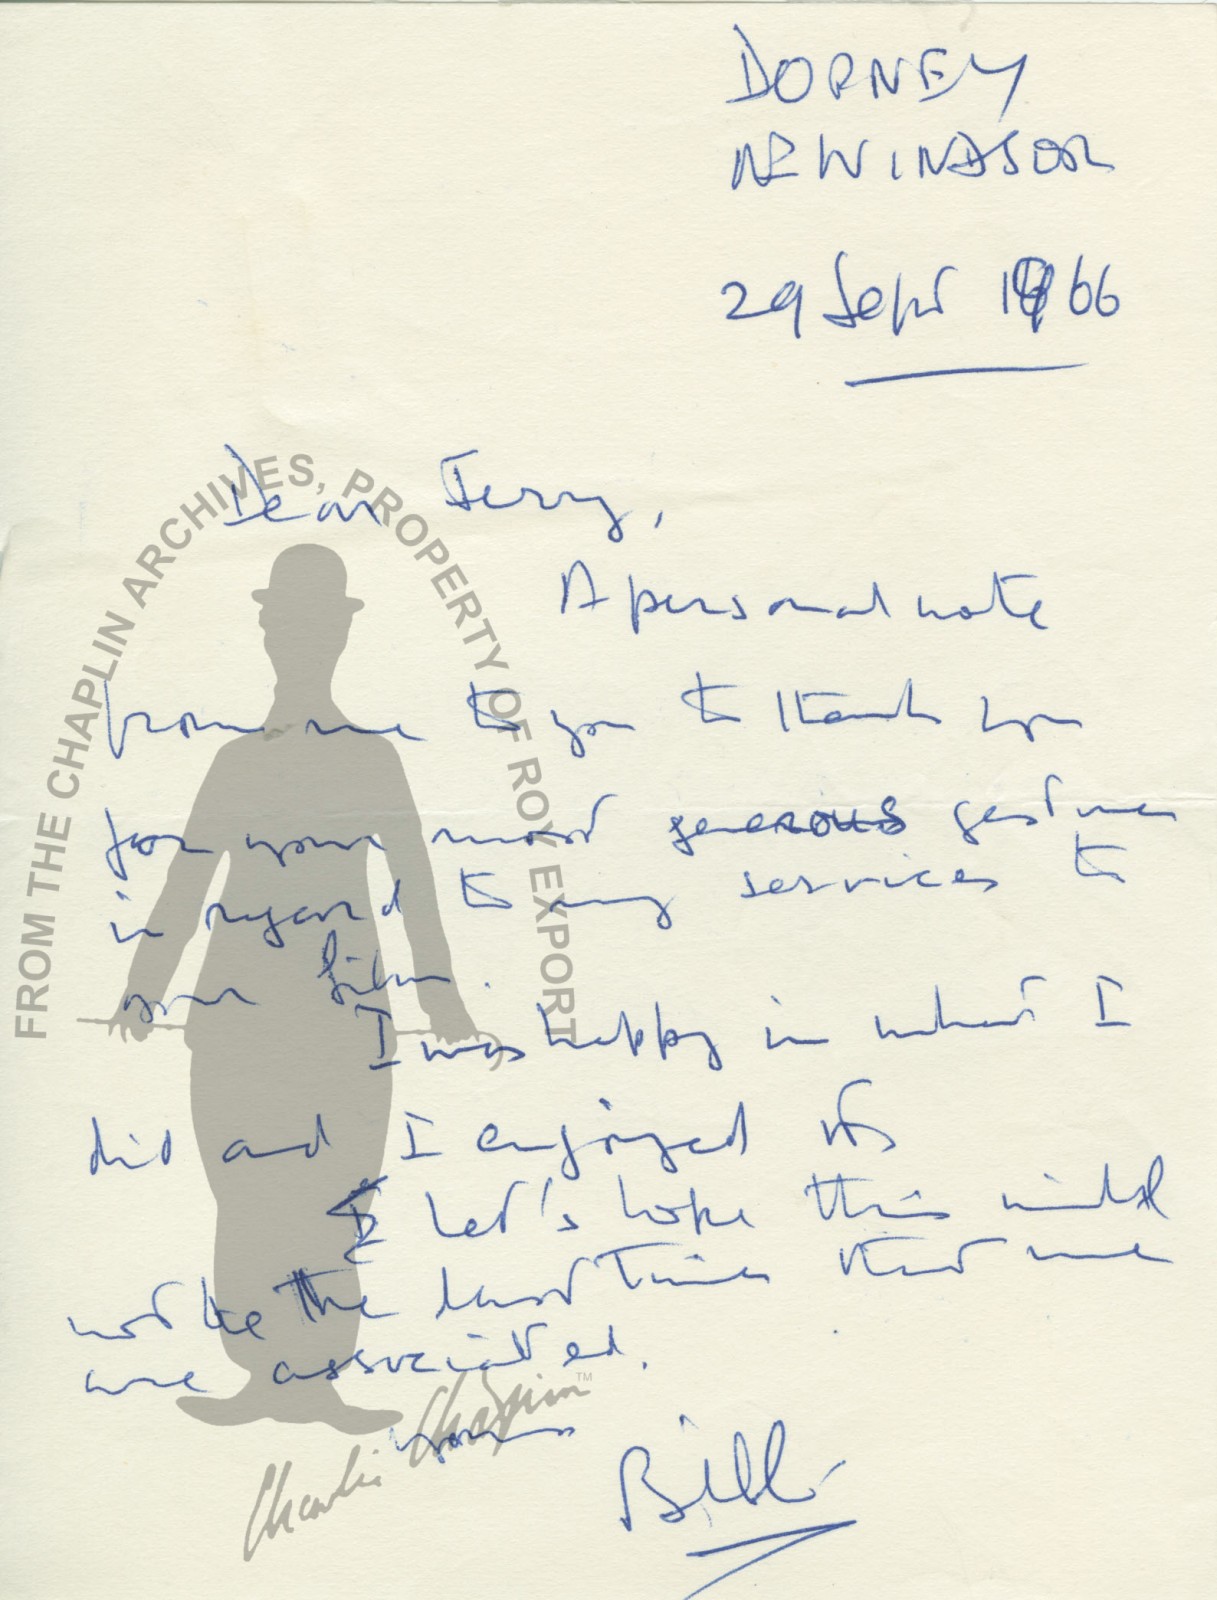 DORNEY
NR WINDSOR
29 Sept 1966
Dear Jerry,
A personal note
from me to you to thank you
for your most generous gesture
in regard to my services to
your film.
I was happy in what I
did and I enjoyed it
Let's hope this will
not be the last time that we
are associated.
yours
Bill
FROM THE CHAPLIN ARCHIVES, PROPERTY OF ROY EXPORT
Charlie Chaplin ™